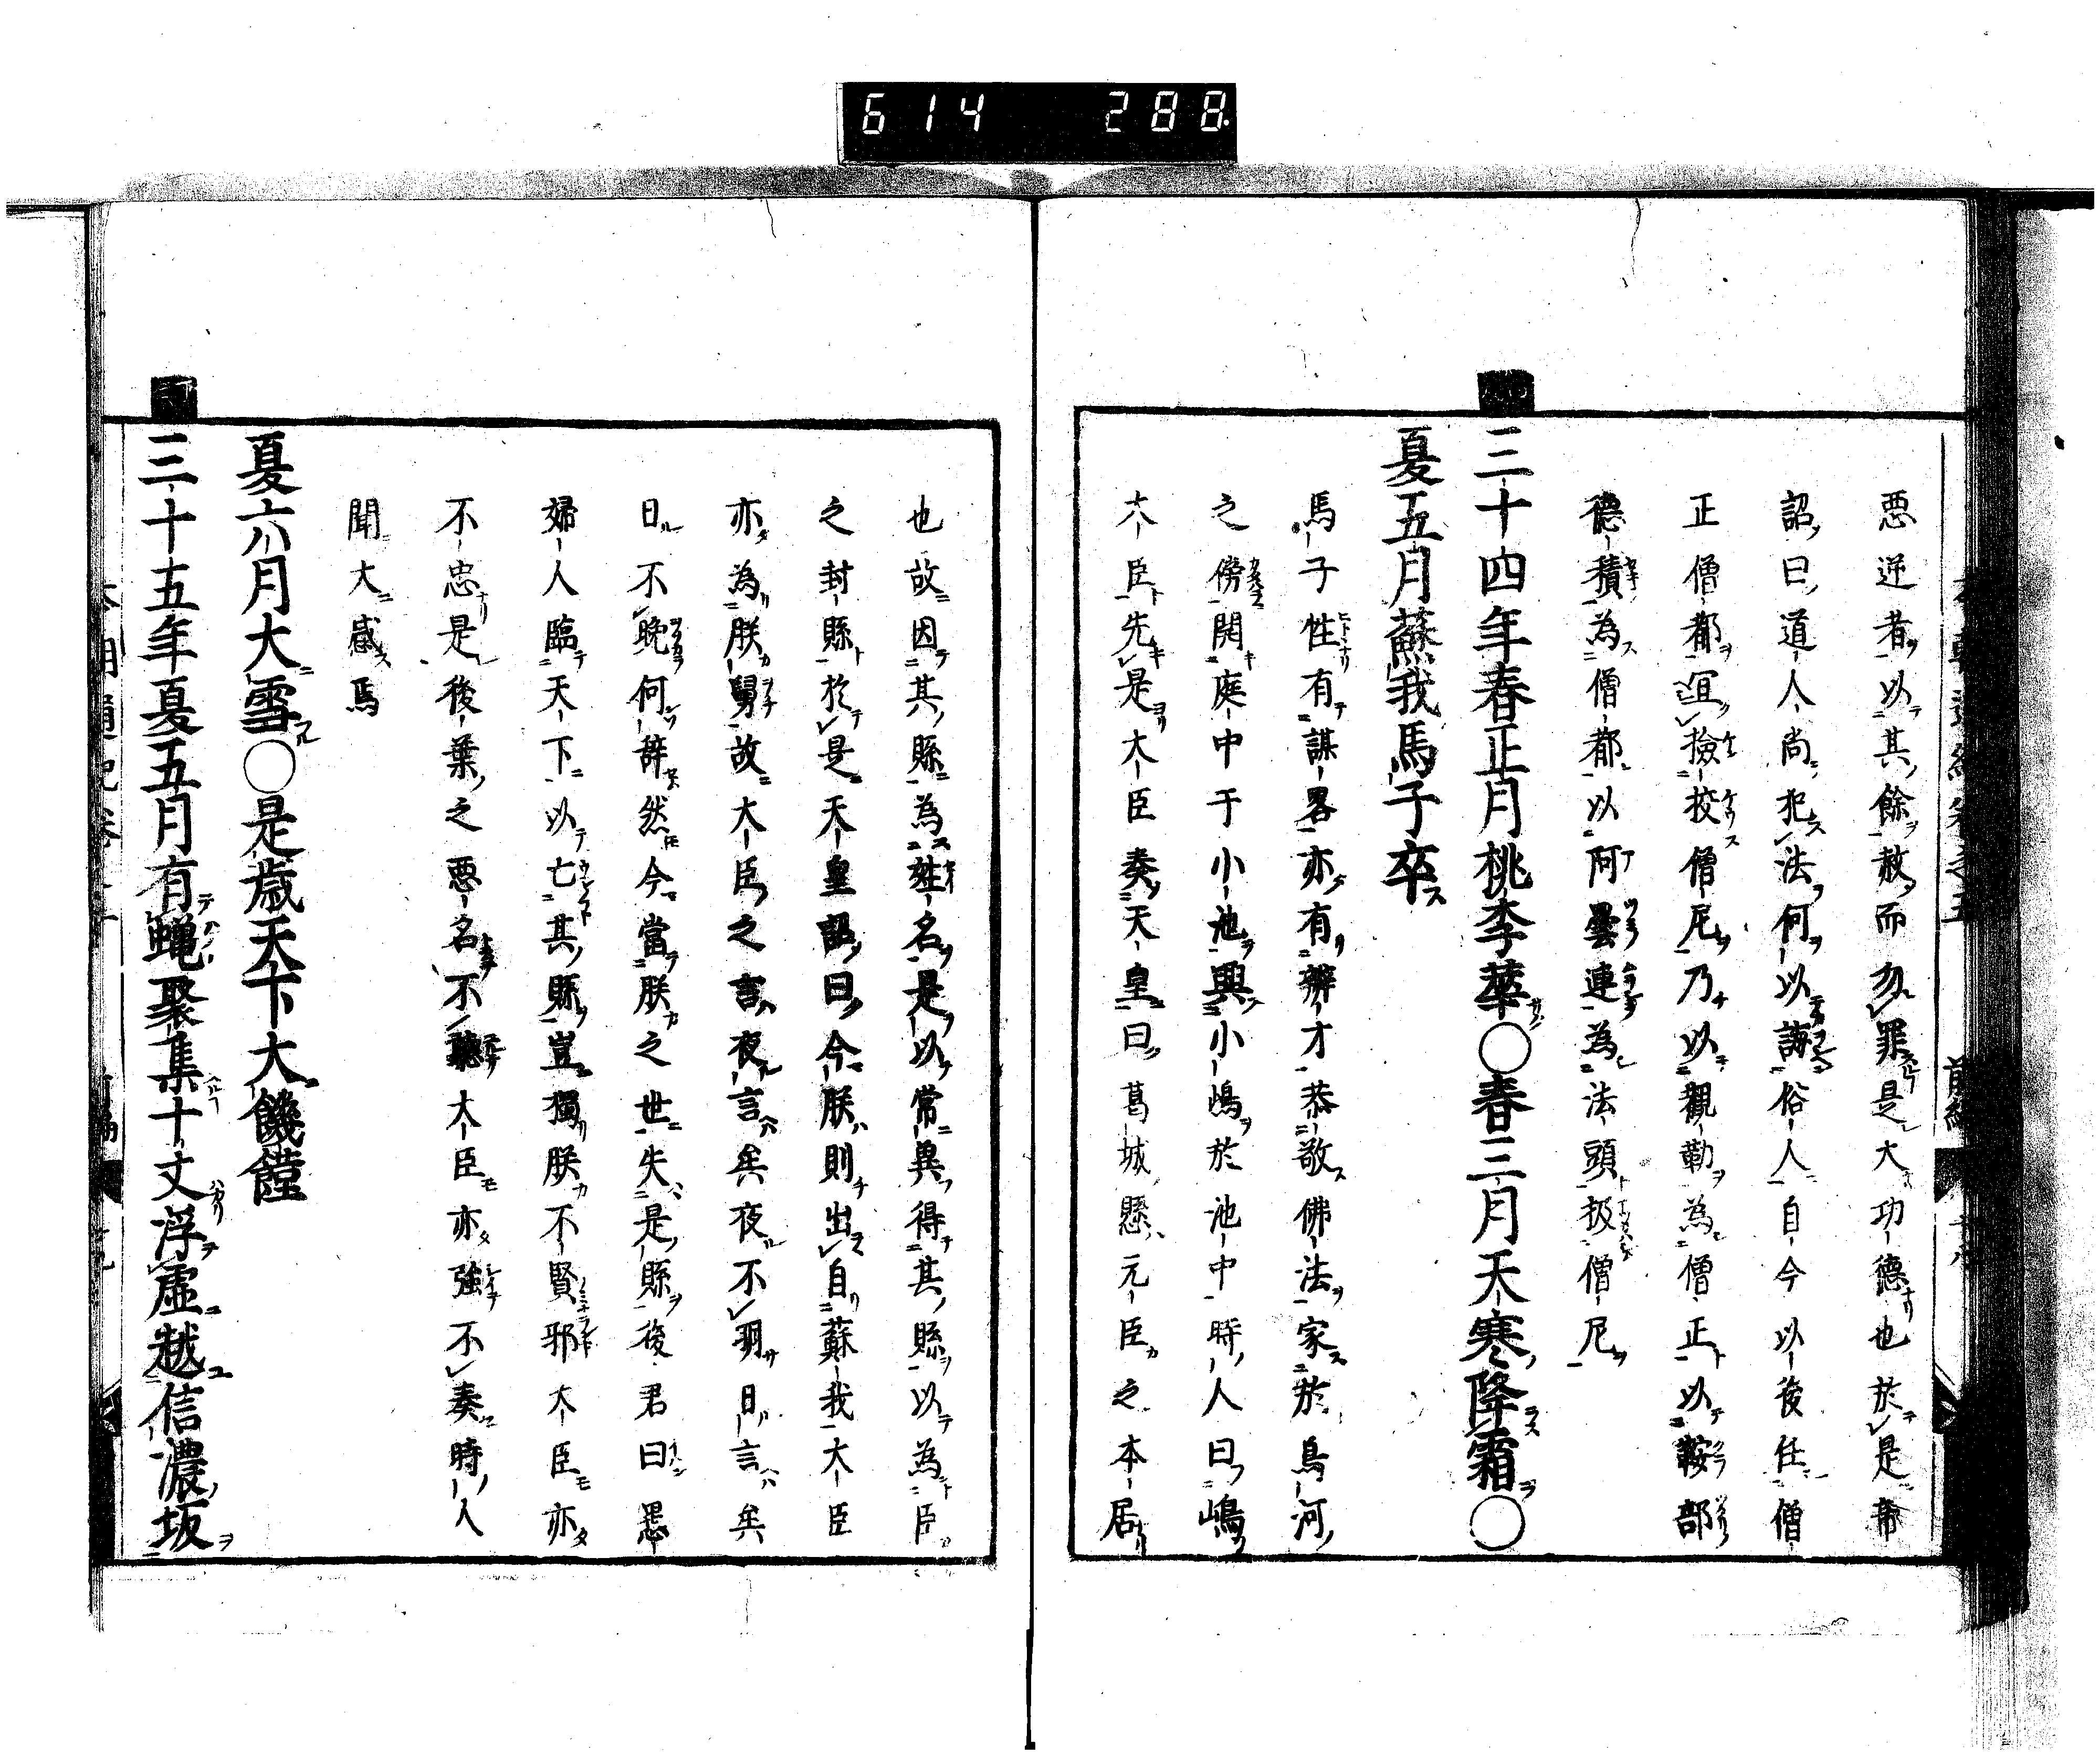 614 288
悪逆者以其餘赦而勿罪是大功德也於是帝
詔曰道人尚犯法何以誨俗人自今以後任僧
正僧都冝撿挍僧尼乃以觀勒為僧正以鞍部
德積為僧都以阿曇連為法頭扱僧尼
三十四年春正月桃李華〇春三月天寒降霜〇
夏五月蘇我馬子卒
馬子性有謀畧亦有辯才恭敬佛法家於鳥河
之傍開庭中于小池興小嶋於池中時人曰嶋
大臣先是大臣奏天皇曰葛城懸元臣之本居
也故因其縣為姓名是以常異得其縣以為臣
之封縣於是天皇詔曰今朕則出自蘇我大臣
亦為朕舅故大臣之言夜言矣夜不明日言矣
日不晚何辞然今當朕之世失是縣後君曰愚
婦人臨天下以亡其縣豈獨朕不賢邪大臣亦
不忠是後葉之悪名不聽大臣亦強不奏時人
聞大感焉
夏六月大雪〇是歳天下大饑饉
三十五年夏五月有蝿聚集十丈浮虚越信濃坂